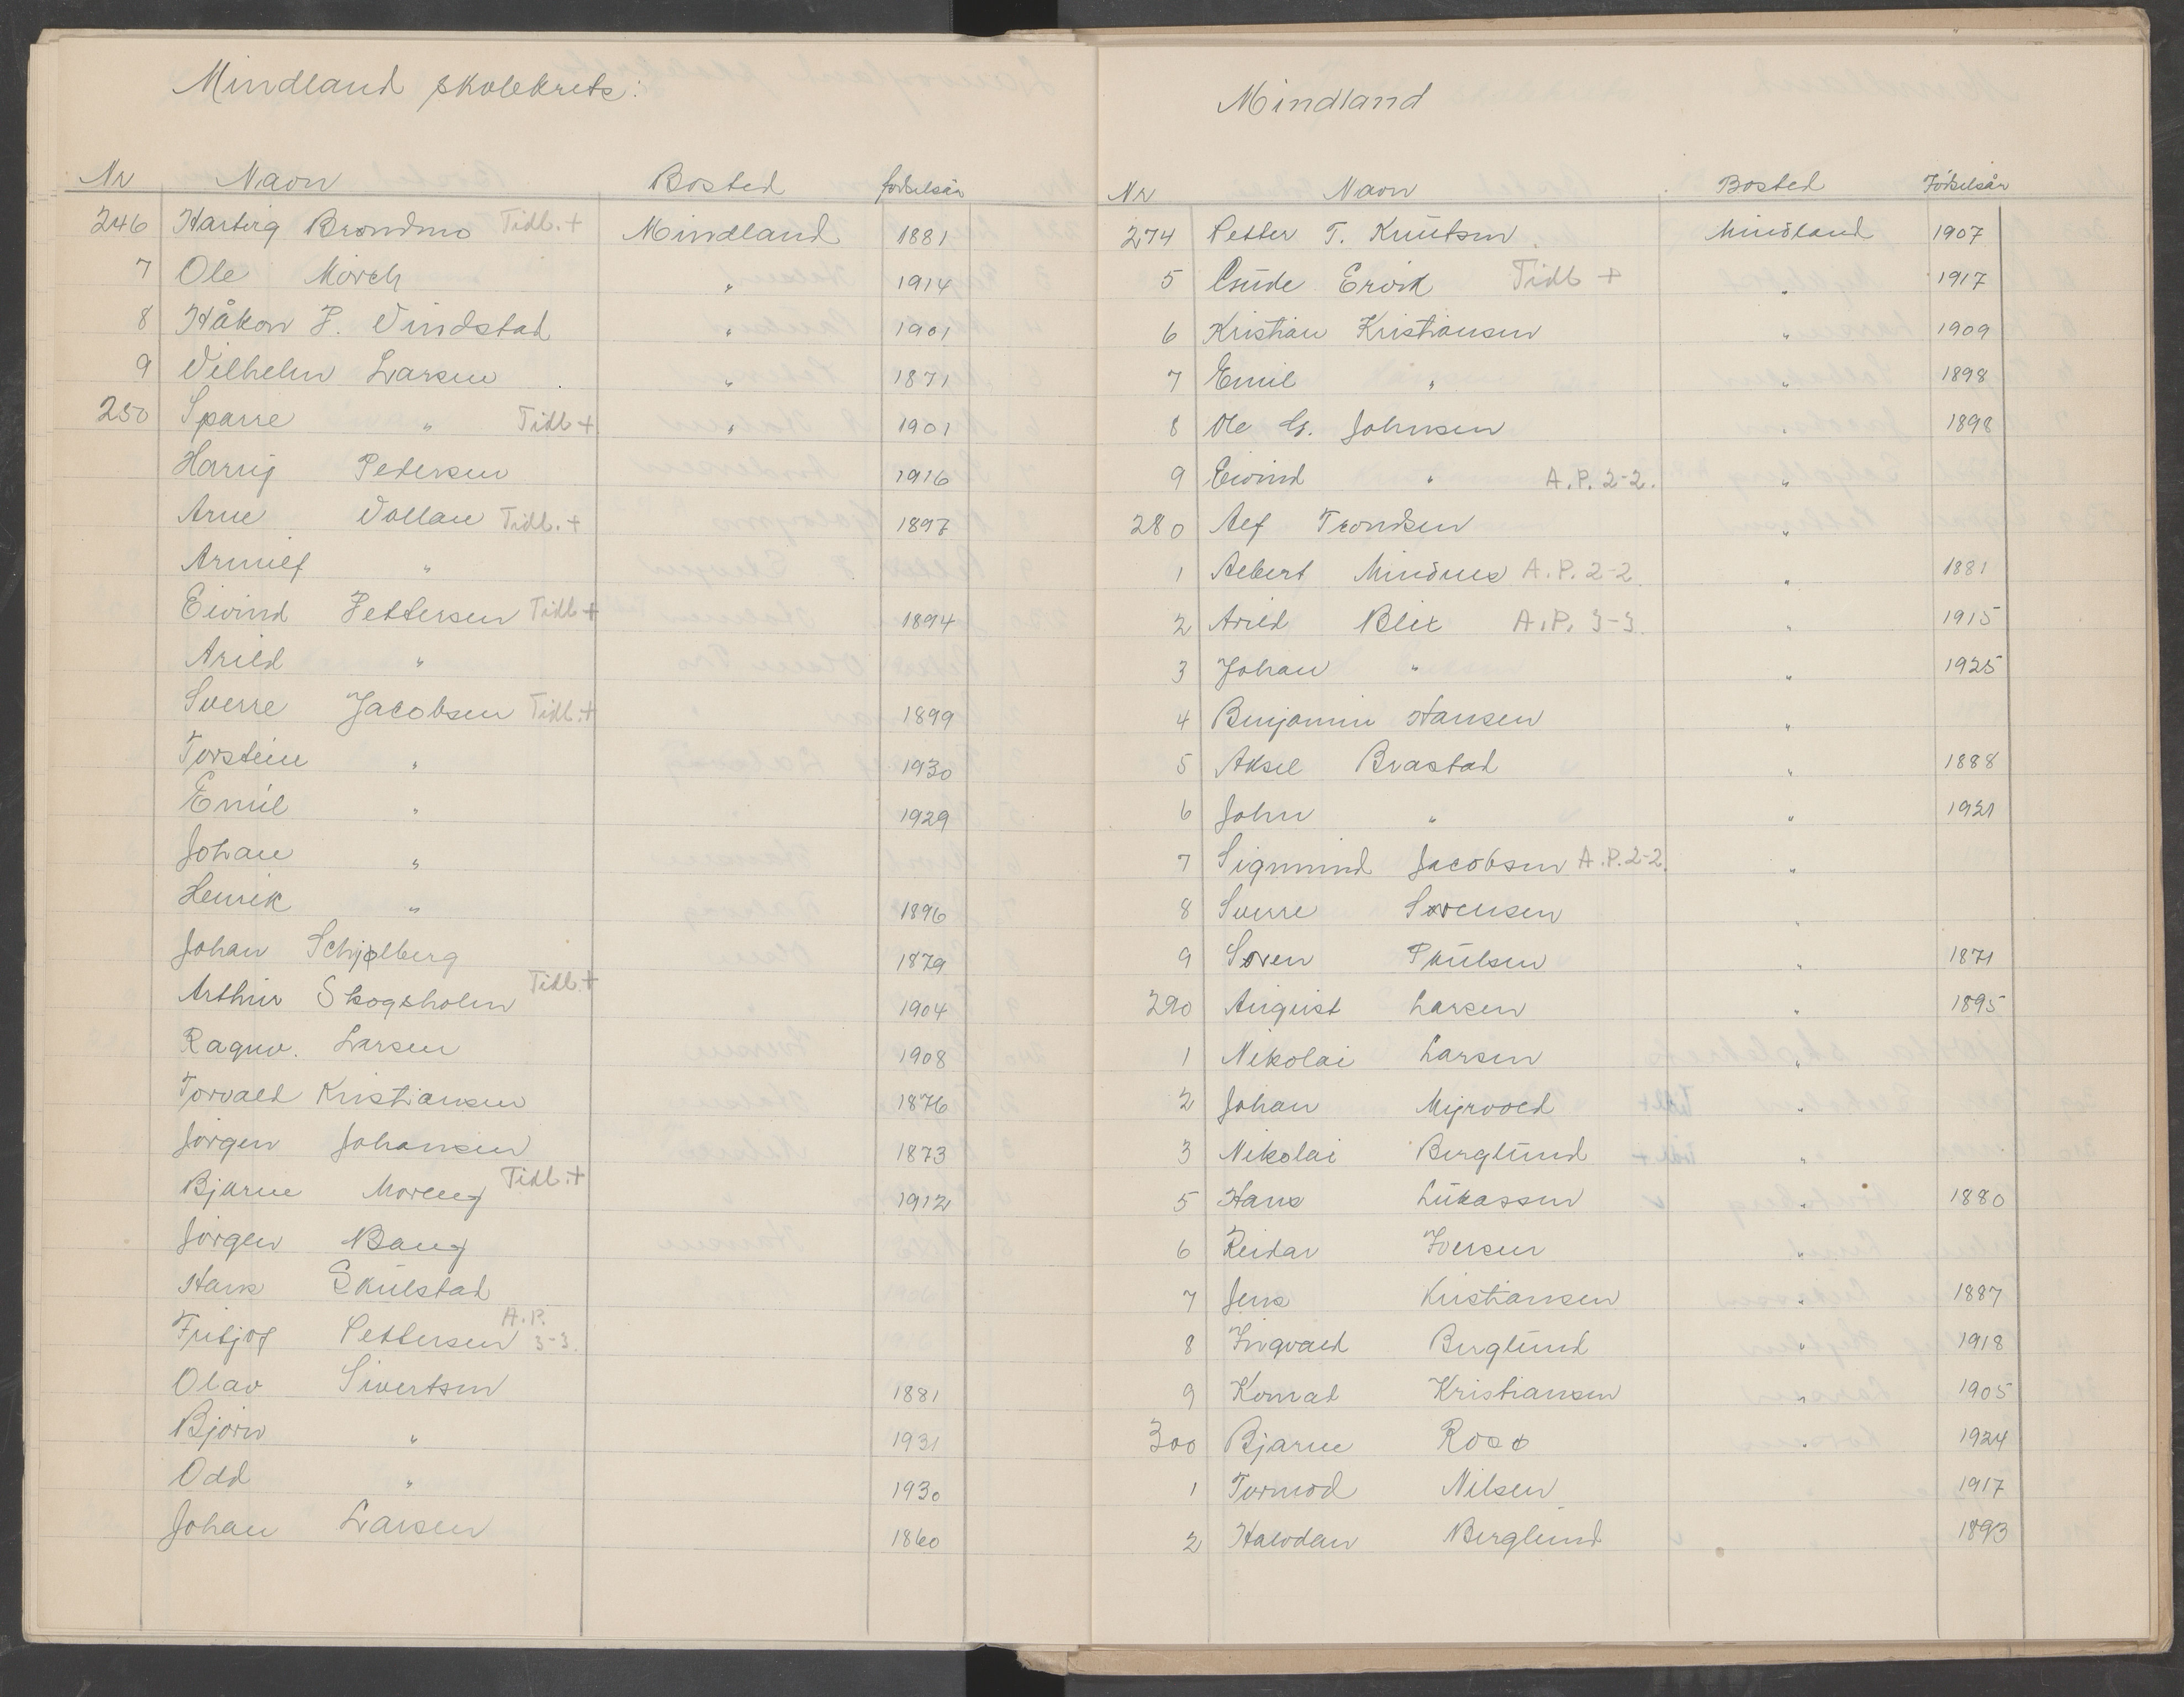 Mindland skolekrets:
Nr Navn Bosted fødselsår
246 Hartvig Brøndmo Tidl. + Mindland 1881
7 Ole Mörch " 1914
8 Håkon P. Vindstad " 1901
9 Vilhelm Larsen " 1871
250 Sparre " Tidl + " 1901
Harrij Pedersen 1916
Arne Vollan Tidl. + 1897
Arnulf "
Eivind Pettersen Tidl + 1894
Arild "
Sverre Jacobsen Tidl. + 1899
Torstein " 1930
Emil " 1929
Johan "
Henrik " 1896
Johan Schjølberg 1879
Arthur Skogsholm Tidl. + 1904
Ragnv. Larsen 1908
Torvald Kristiansen 1876
Jörgen Johansen 1873
Bjarne Moreng Tidl. + 1912
Jörgen Bang
Hans Skulstad
Fritjof Pettersen A.P. 3-3.
Olav Sivertsen 1881
Björn " 1931
Odd " 1930
Johan Larsen 1860
Mindland
Nr Navn Bosted Födselsår
274 Petter T. Knutsen Mindland 1907
5 Gude Tidl + " 1917
6 Kristian Kristiansen " 1909
7 Emil " " 1898
8 Ole G. Johnsen " 1898
9 Eivind " A.P. 2-2. "
280 Alf Trondsen "
1 Albert Mindnes A.P. 2-2. " 1881
2 Arild Blix A.P. 3-3. " 1915
3 Johan " " 1925
4 Benjamin Hansen "
5 Aksel Brastad " 1888
6 John " " 1921
7 Sigmund Jacobsen A.P. 2-2. "
8 Sverre Sørensen "
9 Søren Paulsen " 1871
290 August Larsen " 1895
1 Nikolai Larsen "
2 Johan Myrvold "
3 Nikolai Berglund "
5 Hans Lukassen " 1880
6 Reidar Iversen "
7 Jens Kristiansen " 1887
8 Ingvald Berglund " 1918
9 Konrad Kristiansen " 1905
300 Bjarne Roso " 1924
1 Tormod Nilsen 1917
2 Halvdan Berglund 1893